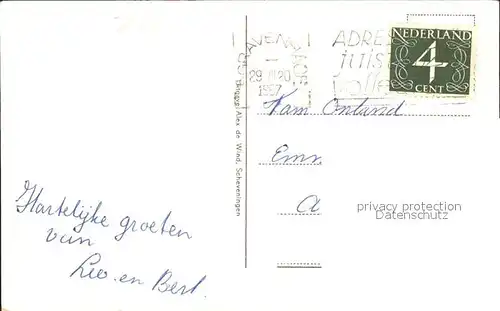 'S GRAVENHAGE
29.VII.20
1957
ADRES
juist
NEDERLAND
4
CENT
Uitgave: Alex de Wind, Scheveningen
Fam Onland
Emn
A
privacy protection
Datenschutz
Hartelijke groeten
van
Leo en Bert.